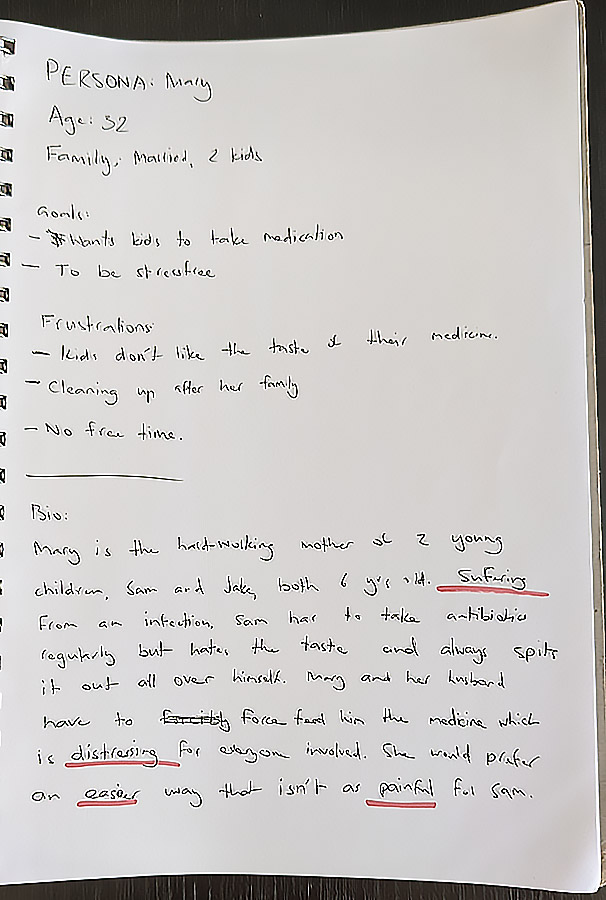 PERSONA: Mary
Age: 32
Family: Married, 2 kids
Goals:
- Wants kids to take medication
- To be stressfree
Frustrations:
- Kids don't like the taste of their medicine.
- Cleaning up after her family
- No free time.
Bio:
Mary is the hard-working mother of 2 young
children, Sam and Jake, both 6 yrs old. Suffering
From an infection, Sam has to take antibiotic
regularly but hates the taste and always spits
it out all over himself. Mary and her husband
have to forcibly force feed him the medicine which
is distressing for everyone involved. She would prefer
an easier way that isn't as painful for Sam.